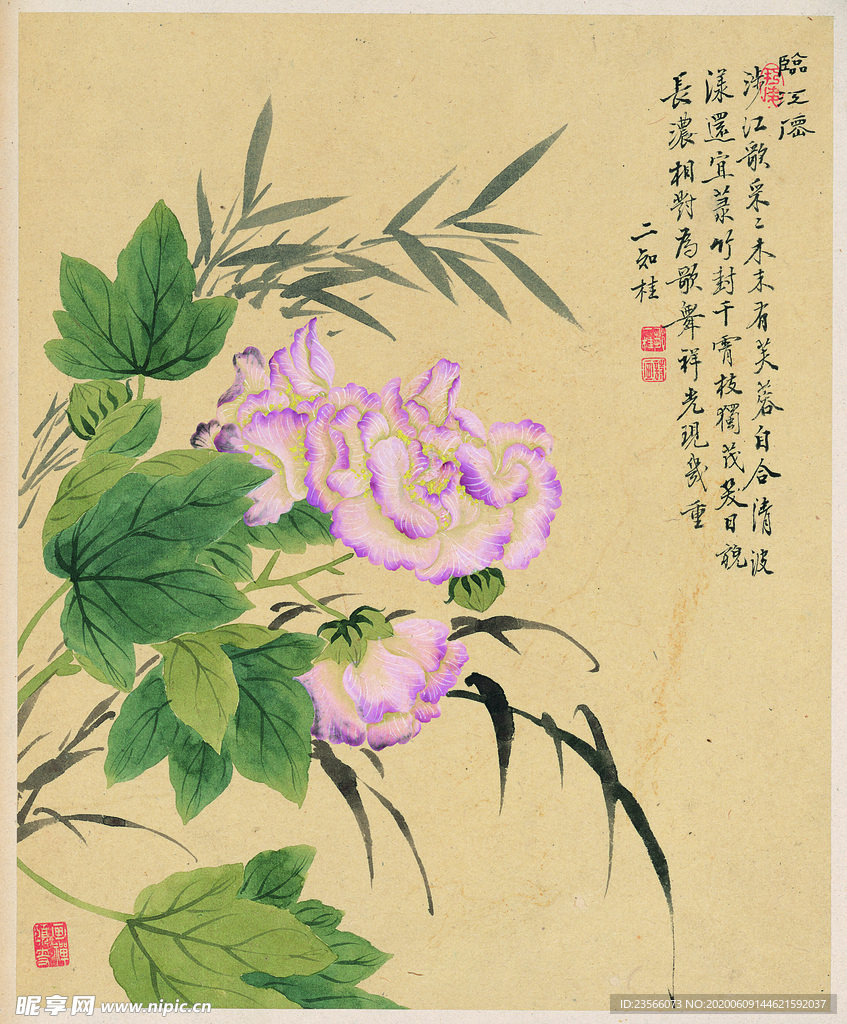 臨江僊
涉江歌采〻未末有芙蓉自合清波
漾還宜菉竹封千霄枝獨茂笑日靚
長濃相對為歌舞祥光現幾重
二知桂
昵享网 www.nipic.cn
ID:23566073 NO:20200609144621592037